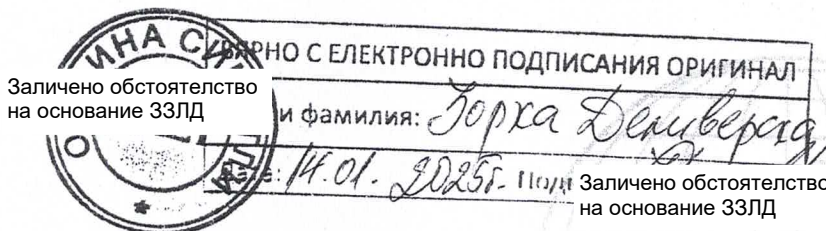 ВЯРНО С ЕЛЕКТРОННО ПОДПИСАНИЯ ОРИГИНАЛ
Заличено обстоятелство
на основание ЗЗЛД
и фамилия: Зорка Деливерска
14.01.2025г.
Заличено обстоятелство
на основание ЗЗЛД